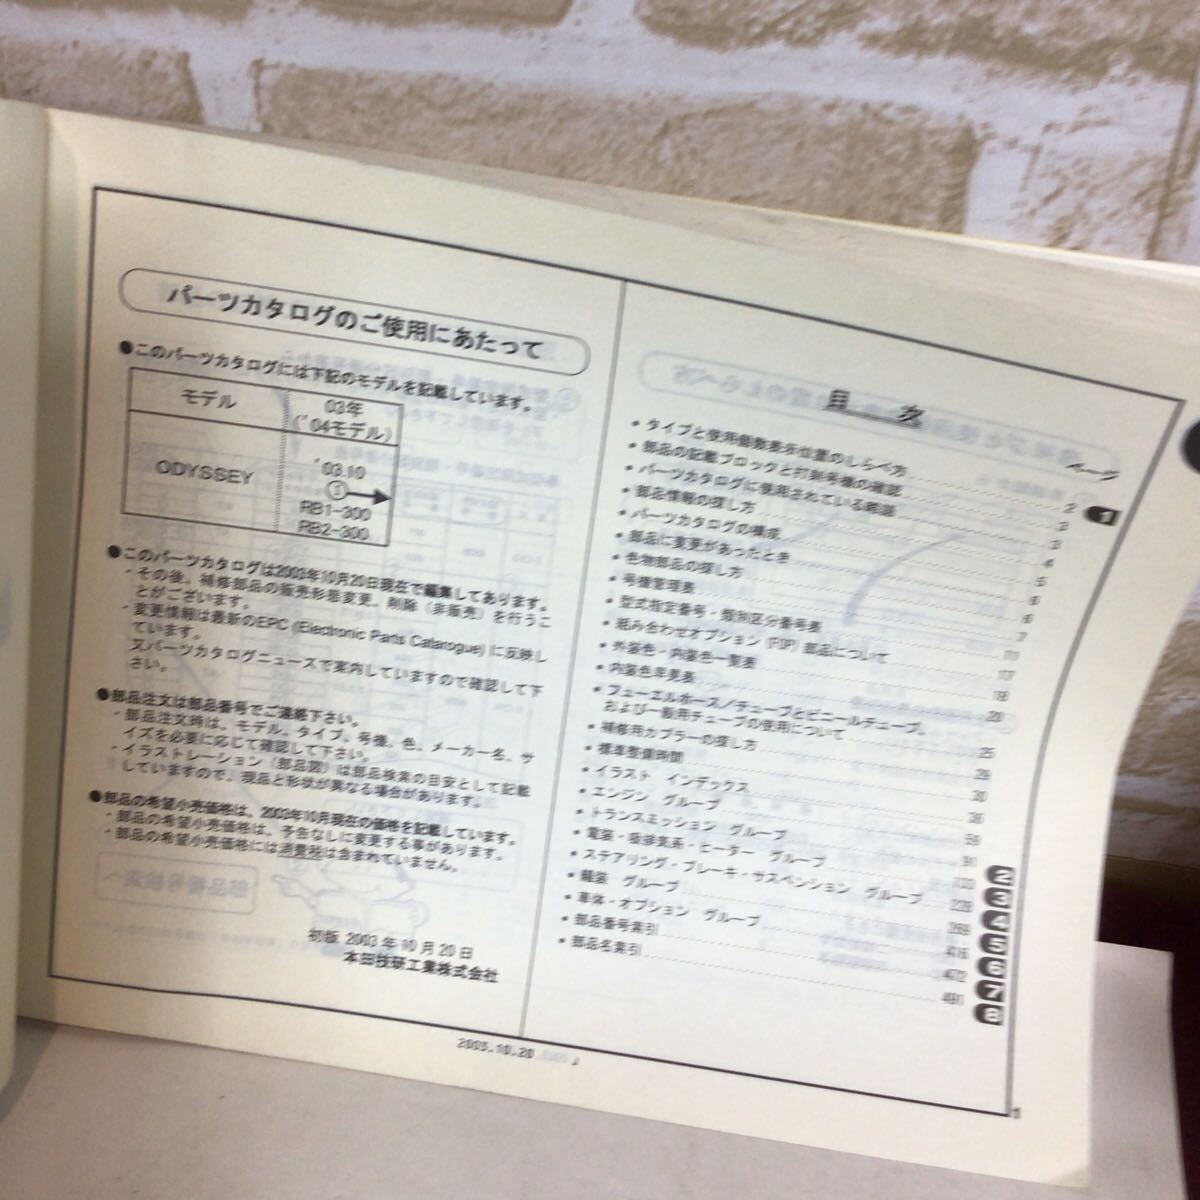 パーツカタログのご使用にあたって
●このパーツカタログには下記のモデルを記載しています。
モデル 03年
('04モデル)
ODYSSEY '03.10
①→
RB1-300
RB2-300
●このパーツカタログは2003年10月20日現在で編集してあります。
・その後、補修部品の販売形態変更、削除（非販売）を行うこ
とがございます。
・変更情報は最新のEPC (Electronic Parts Catarogue) に反映し
ています。
又パーツカタログニュースで案内していますので確認して下
さい。
●部品注文は部品番号でご連絡下さい。
・部品注文時は、モデル、タイプ、号機、色、メーカー名、サ
イズを必要に応じて確認して下さい。
・イラストレーション（部品図）は部品検索の目安として記載
していますので、現品と形状が異なる場合があります。
●部品の希望小売価格は、2003年10月現在の価格を記載しています。
・部品の希望小売価格は、予告なしに変更する事があります。
・部品の希望小売価格には消費税は含まれていません。
初版 2003年10月20日
本田技研工業株式会社
目 次
ページ
・タイプと使用個数表示位置のしらべ方 2
・部品の記載ブロックと打刻号機の確認 3
・パーツカタログに使用されている略語 3
・部品情報の探し方 4
・パーツカタログの構成 5
・部品に変更があったとき 6
・色物部品の探し方 6
・号機管理表 7
・型式指定番号・類別区分番号表 11
・組み合わせオプション (FOP) 部品について 17
・外装色・内装色一覧表 18
・内装色早見表 20
・フューエルホース／チューブとビニールチューブ、
および一般用チューブの使用について 25
・補修用カプラーの探し方 29
・標準整備時間 30
・イラスト インデックス 36
・エンジン グループ 59
・トランスミッション グループ 91
・電装・吸排気系・ヒーター グループ
・ステアリング・ブレーキ・サスペンション グループ
・艤装 グループ 269
・車体・オプション グループ 416
・部品番号索引 472
・部品名索引 491
1
2
3
4
5
6
7
8
1